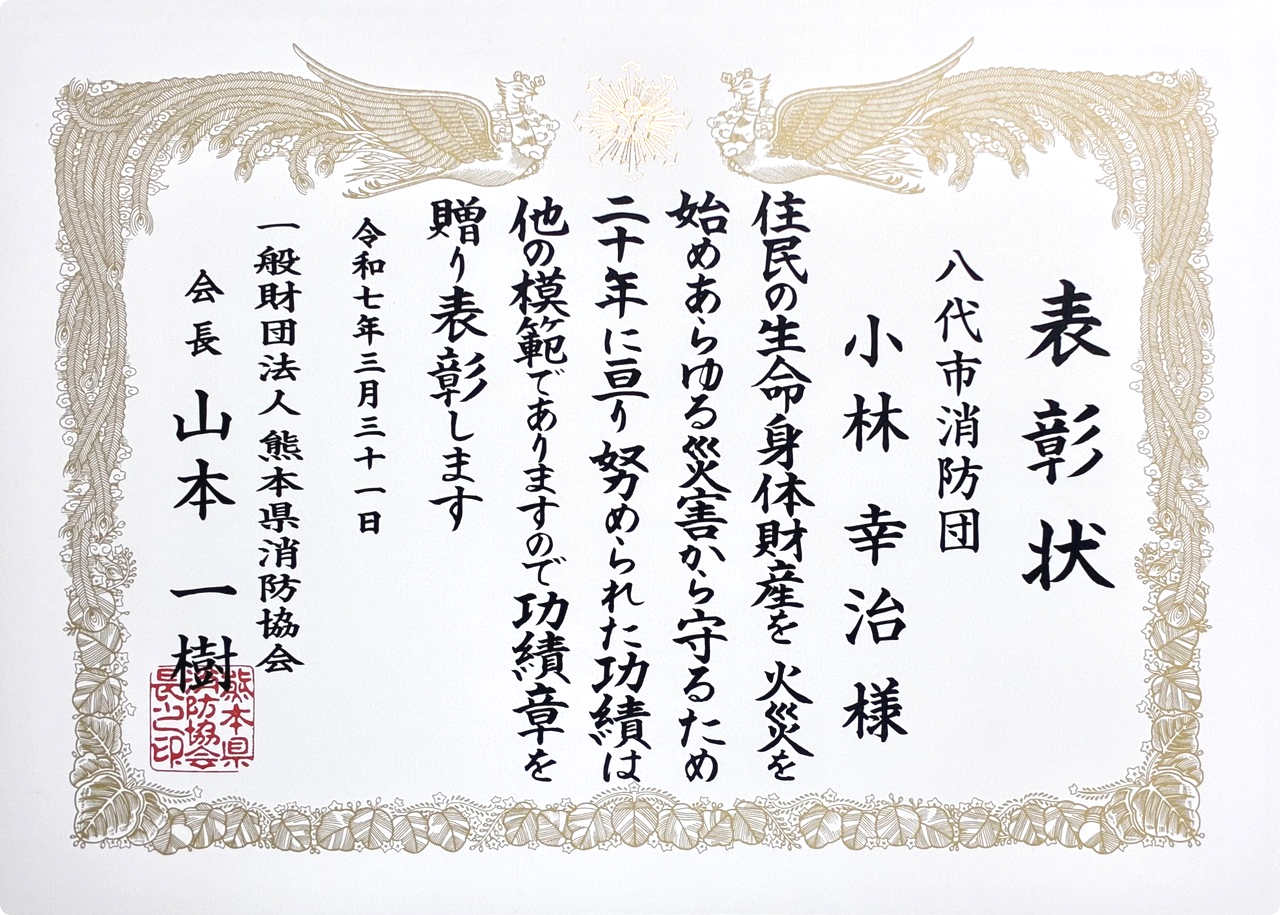 表彰状
八代市消防団
小林幸治様
住民の生命身体財産を 火災を
始めあらゆる災害から守るため
二十年に亘り努められた功績は
他の模範でありますので功績章を
贈り表彰します
令和七年三月三十一日
一般財団法人 熊本県消防協会
会長 山本一樹
熊本県
消防協会
長之印